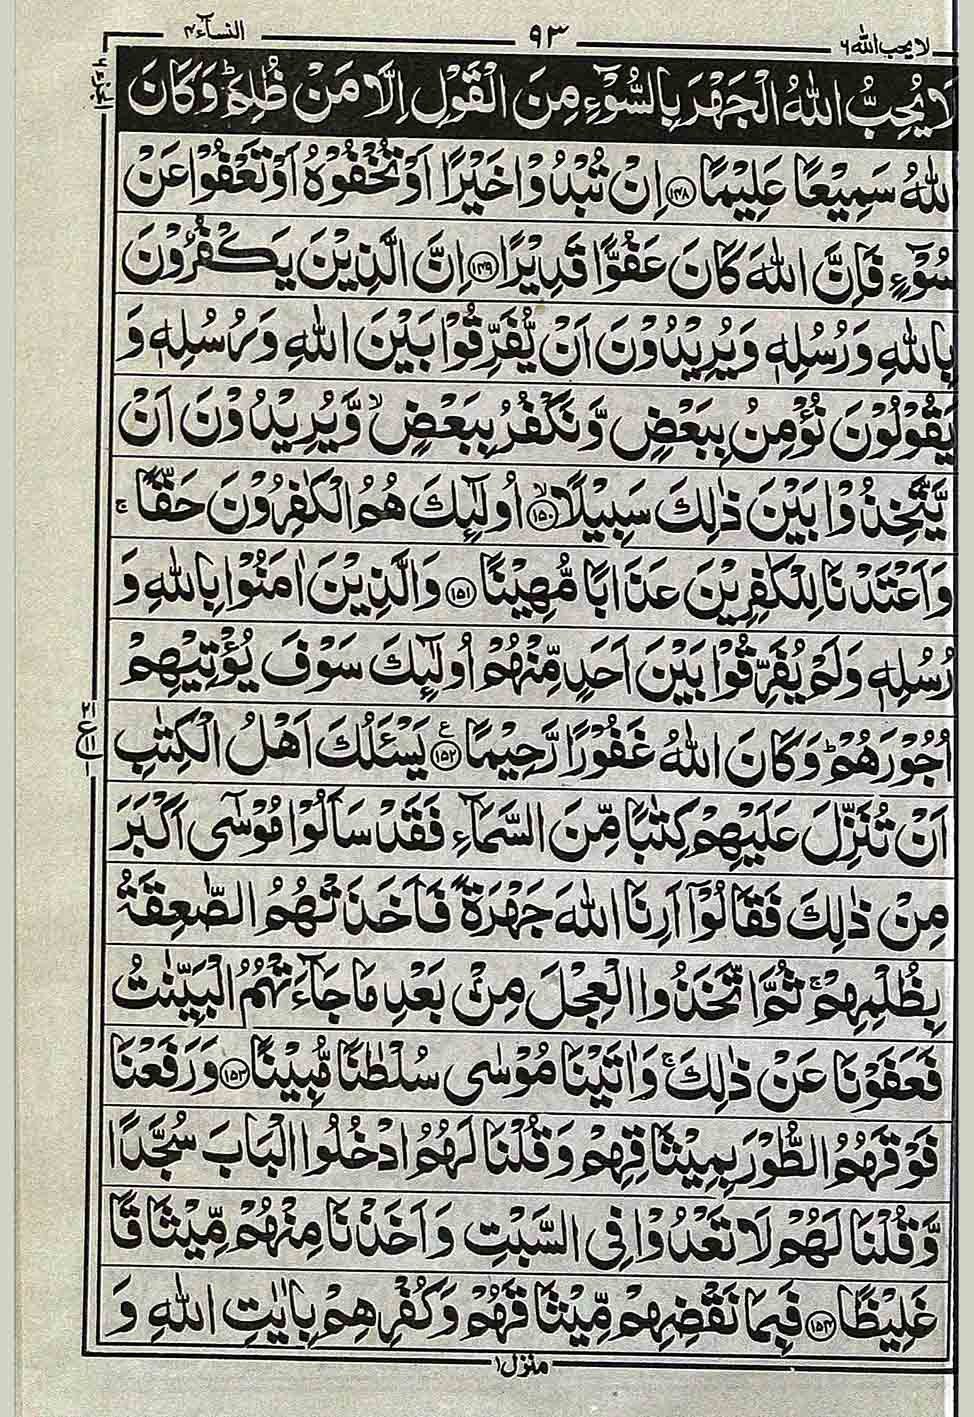 لا يحب الله ٦ ٩٣ النسآء ٤
لَا يُحِبُّ اللّٰهُ الْجَهْرَ بِالسُّوْٓءِ مِنَ الْقَوْلِ اِلَّا مَنْ ظُلِمَ ؕ وَكَانَ
اللّٰهُ سَمِيْعًا عَلِيْمًا ﴿۱۴۸﴾ اِنْ تُبْدُوْا خَيْرًا اَوْ تُخْفُوْهُ اَوْ تَعْفُوْا عَنْ
سُوْٓءٍ فَاِنَّ اللّٰهَ كَانَ عَفُوًّا قَدِيْرًا ﴿۱۴۹﴾ اِنَّ الَّذِيْنَ يَكْفُرُوْنَ
بِاللّٰهِ وَرُسُلِهٖ وَيُرِيْدُوْنَ اَنْ يُّفَرِّقُوْا بَيْنَ اللّٰهِ وَرُسُلِهٖ وَ
يَقُوْلُوْنَ نُؤْمِنُ بِبَعْضٍ وَّنَكْفُرُ بِبَعْضٍ ۙ وَّيُرِيْدُوْنَ اَنْ
يَّتَّخِذُوْا بَيْنَ ذٰلِكَ سَبِيْلًا ﴿۱۵۰﴾ ۙ اُولٰٓئِكَ هُمُ الْكٰفِرُوْنَ حَقًّا ۚ
وَاَعْتَدْنَا لِلْكٰفِرِيْنَ عَذَابًا مُّهِيْنًا ﴿۱۵۱﴾ وَالَّذِيْنَ اٰمَنُوْا بِاللّٰهِ وَ
رُسُلِهٖ وَلَمْ يُفَرِّقُوْا بَيْنَ اَحَدٍ مِّنْهُمْ اُولٰٓئِكَ سَوْفَ يُؤْتِيْهِمْ
اُجُوْرَهُمْ ؕ وَكَانَ اللّٰهُ غَفُوْرًا رَّحِيْمًا ﴿۱۵۲﴾ ع يَسْـَٔلُكَ اَهْلُ الْكِتٰبِ
اَنْ تُنَزِّلَ عَلَيْهِمْ كِتٰبًا مِّنَ السَّمَآءِ فَقَدْ سَاَلُوْا مُوْسٰٓى اَكْبَرَ
مِنْ ذٰلِكَ فَقَالُوْٓا اَرِنَا اللّٰهَ جَهْرَةً فَاَخَذَتْهُمُ الصّٰعِقَةُ
بِظُلْمِهِمْ ۚ ثُمَّ اتَّخَذُوا الْعِجْلَ مِنْۢ بَعْدِ مَا جَآءَتْهُمُ الْبَيِّنٰتُ
فَعَفَوْنَا عَنْ ذٰلِكَ ۚ وَاٰتَيْنَا مُوْسٰى سُلْطٰنًا مُّبِيْنًا ﴿۱۵۳﴾ وَرَفَعْنَا
فَوْقَهُمُ الطُّوْرَ بِمِيْثَاقِهِمْ وَقُلْنَا لَهُمُ ادْخُلُوا الْبَابَ سُجَّدًا
وَّقُلْنَا لَهُمْ لَا تَعْدُوْا فِى السَّبْتِ وَاَخَذْنَا مِنْهُمْ مِّيْثَاقًا
غَلِيْظًا ﴿۱۵۴﴾ فَبِمَا نَقْضِهِمْ مِّيْثَاقَهُمْ وَكُفْرِهِمْ بِاٰيٰتِ اللّٰهِ وَ
منزل ۱